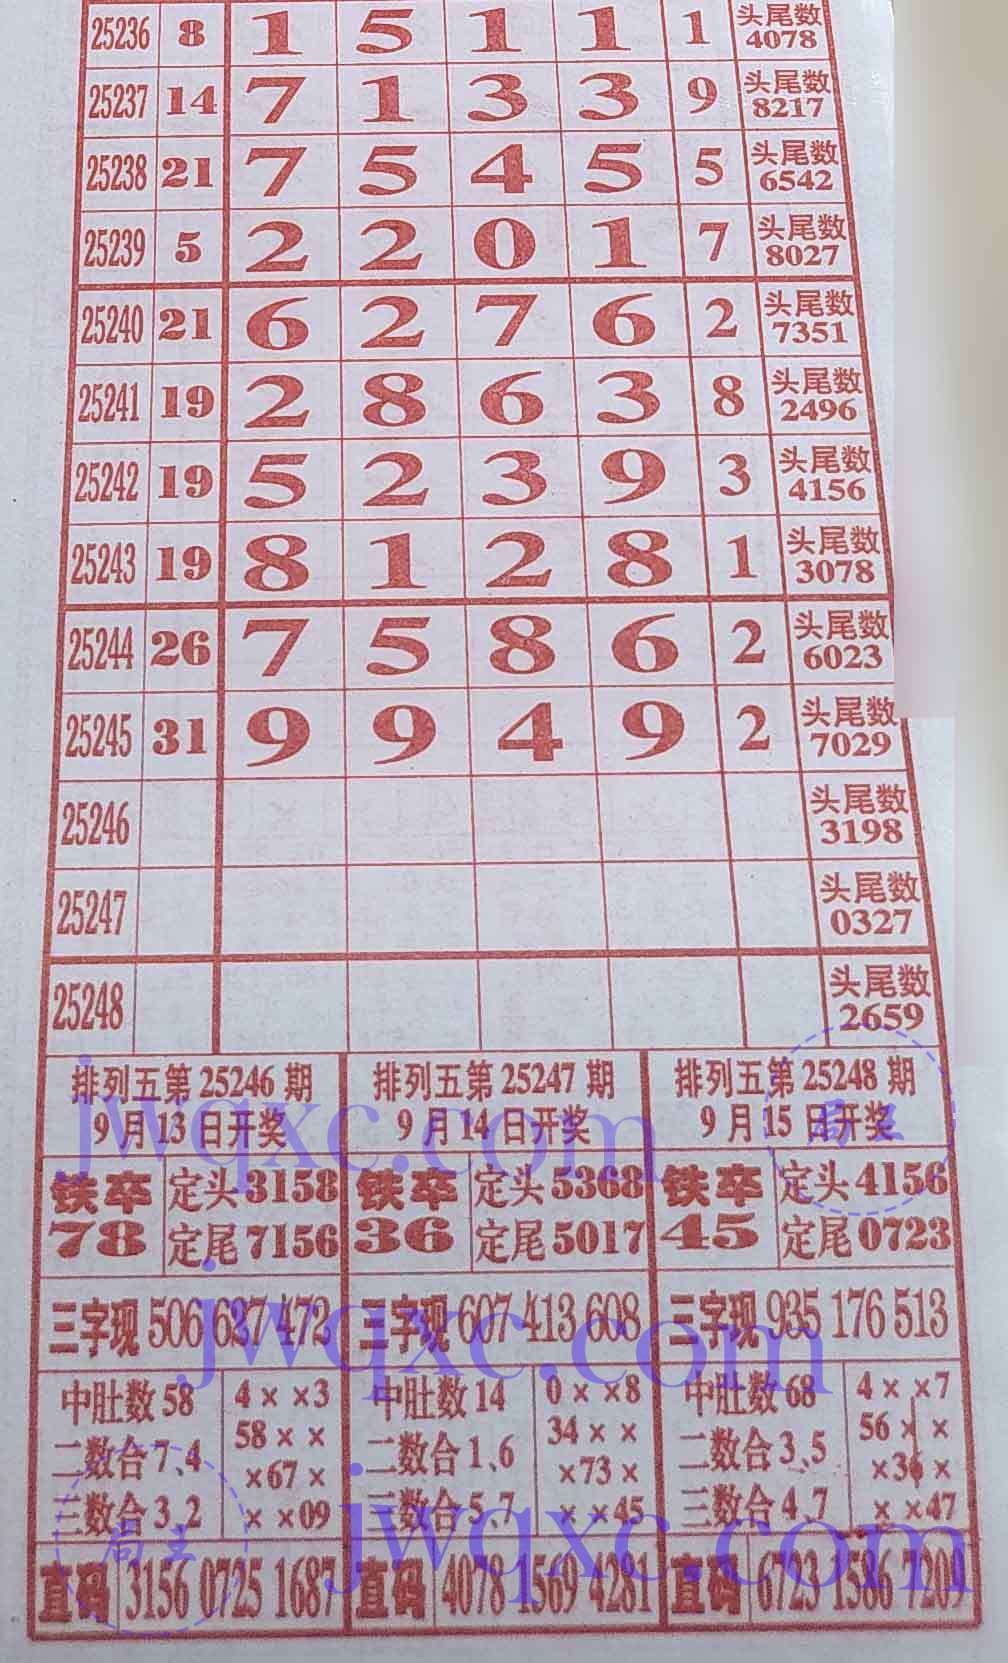 25236 8 1 5 1 1 1 头尾数
4078
25237 14 7 1 3 3 9 头尾数
8217
25238 21 7 5 4 5 5 头尾数
6542
25239 5 2 2 0 1 7 头尾数
8027
25240 21 6 2 7 6 2 头尾数
7351
25241 19 2 8 6 3 8 头尾数
2496
25242 19 5 2 3 9 3 头尾数
4156
25243 19 8 1 2 8 1 头尾数
3078
25244 26 7 5 8 6 2 头尾数
6023
25245 31 9 9 4 9 2 头尾数
7029
25246 头尾数
3198
25247 头尾数
0327
25248 头尾数
2659
排列五第25246期 排列五第25247期 排列五第25248期
9月13日开奖 9月14日开奖 9月15日开奖
铁卒 定头3158 铁卒 定头5368 铁卒 定头4156
78 定尾7156 36 定尾5017 45 定尾0723
三字现 506 637 472 三字现 607 413 608 三字现 935 176 513
中肚数58 4××3 中肚数14 0××8 中肚数68 4××7
58×× 34×× 56××
二数合7、4 ×67× 二数合1、6 ×73× 二数合3、5 ×36×
三数合3、2 ××09 三数合5、7 ××45 三数合4、7 ××47
直码 3156 0725 1687 直码 4078 1569 4281 直码 6723 1586 7209
jwqxc.com
jwqxc.com
jwqxc.com